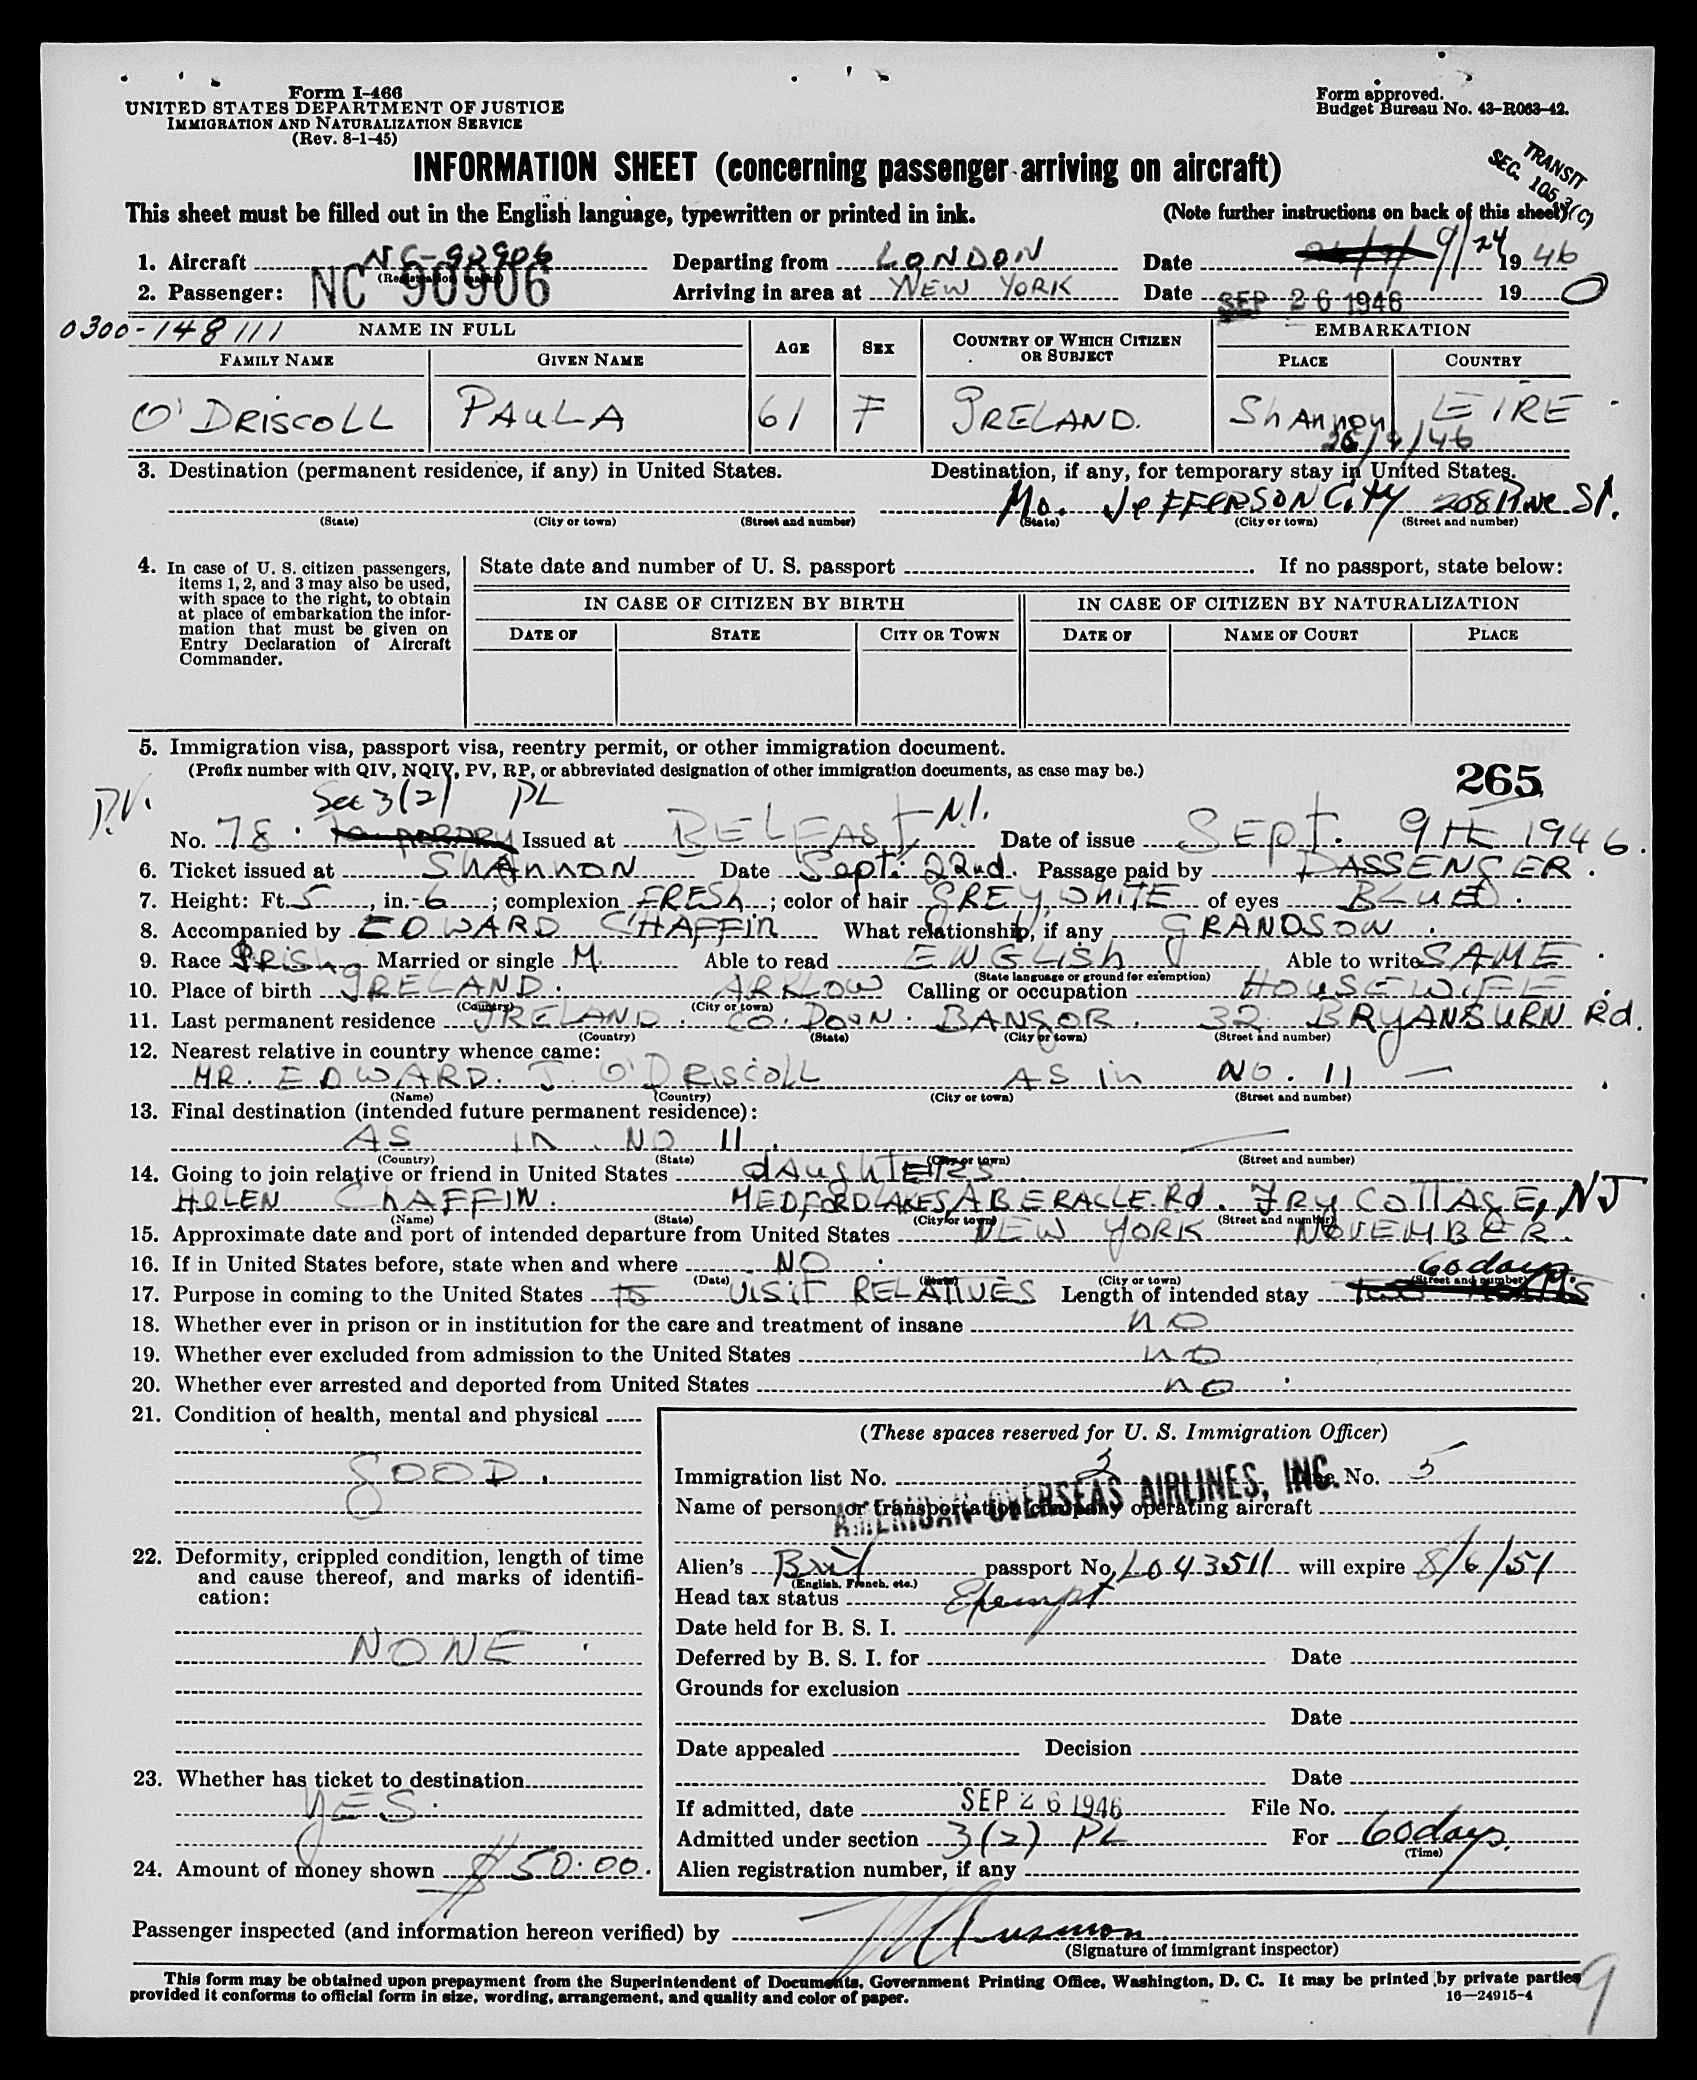 Form I-466
UNITED STATES DEPARTMENT OF JUSTICE
IMMIGRATION AND NATURALIZATION SERVICE
(Rev. 8-1-45)
Form approved.
Budget Bureau No. 43-R063-42.
TRANSIT
SEC. 105.3(C)
INFORMATION SHEET (concerning passenger arriving on aircraft)
This sheet must be filled out in the English language, typewritten or printed in ink. (Note further instructions on back of this sheet)
1. Aircraft NC-90906 Departing from LONDON Date 9/24 1946
(Registration marks)
NC 90906
2. Passenger: Arriving in area at NEW YORK Date SEP 26 1946 19 0
0300-148111 NAME IN FULL AGE SEX COUNTRY OF WHICH CITIZEN OR SUBJECT EMBARKATION
FAMILY NAME GIVEN NAME PLACE COUNTRY
O'DRISCOLL PAULA 61 F IRELAND. ShANNON EIRE
26/9/46
3. Destination (permanent residence, if any) in United States. Destination, if any, for temporary stay in United States.
Mo. JEFFERSON City 208 Pine St.
(State) (City or town) (Street and number) (State) (City or town) (Street and number)
4. In case of U. S. citizen passengers, items 1, 2, and 3 may also be used, with space to the right, to obtain at place of embarkation the information that must be given on Entry Declaration of Aircraft Commander.
State date and number of U. S. passport If no passport, state below:
IN CASE OF CITIZEN BY BIRTH IN CASE OF CITIZEN BY NATURALIZATION
DATE OF STATE CITY OR TOWN DATE OF NAME OF COURT PLACE
5. Immigration visa, passport visa, reentry permit, or other immigration document.
(Prefix number with QIV, NQIV, PV, RP, or abbreviated designation of other immigration documents, as case may be.)
265
P.V. Sec 3(2) PL
No. 78 Issued at BELFAST N.I. Date of issue SEPT. 9th 1946.
6. Ticket issued at SHANNON Date Sept. 22nd. Passage paid by PASSENGER.
7. Height: Ft. 5, in. 6; complexion FRESH; color of hair GREY, WHITE of eyes BLUE.
8. Accompanied by EDWARD CHAFFIN What relationship, if any GRANDSON.
9. Race IRISH Married or single M. Able to read ENGLISH Able to write SAME.
(State language or ground for exemption)
10. Place of birth IRELAND. ARKLOW Calling or occupation HOUSEWIFE.
(Country) (City or town)
11. Last permanent residence IRELAND. CO. DOWN. BANGOR. 32 BRYANSBURN Rd.
(Country) (State) (City or town) (Street and number)
12. Nearest relative in country whence came:
MR. EDWARD. J. O'DRISCOLL AS IN NO. 11 —
(Name) (Country) (City or town) (Street and number)
13. Final destination (intended future permanent residence):
AS IN NO 11.
(Country) (State) (City or town) (Street and number)
14. Going to join relative or friend in United States dAughTERS.
HELEN ChAFFIN. MEDFORD LAKES, ABERACLE. Rd. FRY COTTAGE, NJ
(Name) (State) (City or town) (Street and number)
15. Approximate date and port of intended departure from United States NEW YORK NOVEMBER.
16. If in United States before, state when and where NO.
(Date) (State) (City or town) (Street and number)
60 days
17. Purpose in coming to the United States TO VISIT RELATIVES Length of intended stay
18. Whether ever in prison or in institution for the care and treatment of insane NO
19. Whether ever excluded from admission to the United States NO
20. Whether ever arrested and deported from United States NO
21. Condition of health, mental and physical
GOOD.
22. Deformity, crippled condition, length of time and cause thereof, and marks of identification:
NONE
23. Whether has ticket to destination
YES.
24. Amount of money shown $50.00.
(These spaces reserved for U. S. Immigration Officer)
Immigration list No. 3 Line No. 5
AMERICAN OVERSEAS AIRLINES, INC.
Name of person or transportation company operating aircraft
Alien's Brit passport No. L043511 will expire 8/6/51
(English, French, etc.)
Head tax status Exempt
Date held for B. S. I.
Deferred by B. S. I. for Date
Grounds for exclusion
Date
Date appealed Decision
Date
If admitted, date SEP 26 1946 File No.
Admitted under section 3(2) PL For 60 days.
(Time)
Alien registration number, if any
Passenger inspected (and information hereon verified) by
(Signature of immigrant inspector)
This form may be obtained upon prepayment from the Superintendent of Documents, Government Printing Office, Washington, D. C. It may be printed by private parties
provided it conforms to official form in size, wording, arrangement, and quality and color of paper. 16—24915-4
9